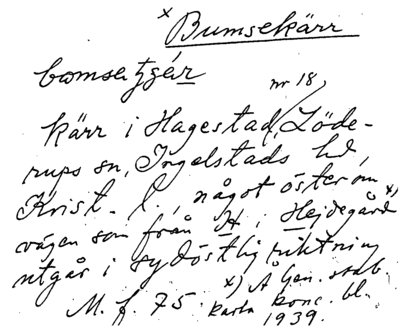 x Bumsekärr
nr 18,
kärr i Hagestad, Löde-
rups sn, Ingelstads hd,
Krist. l., något öster om
vägen som från H i Hejdegård x)
utgår i sydöstlig riktning
x) Å Gen. stab.
M. f. 75. karta konc. bl.
1939.